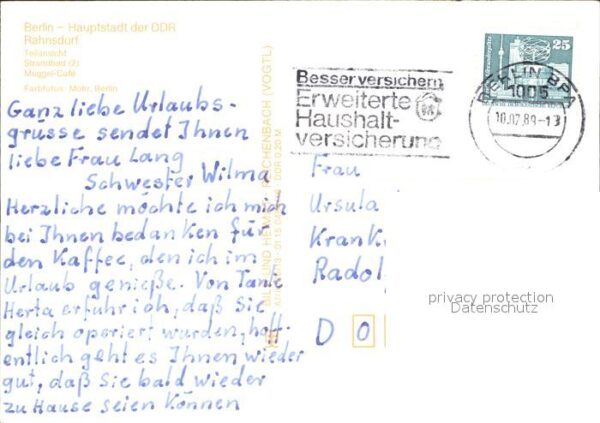 Berlin – Hauptstadt der DDR
Rahnsdorf
Teilansicht
Strandbad (2)
Müggel-Café
Farbfotos: Mohr, Berlin
Ganz liebe Urlaubs-
grüsse sendet Ihnen
liebe Frau Lang
Schwester Wilma
Herzliche möchte ich mich
bei Ihnen bedanken für
den Kaffee, den ich im
Urlaub genieße. Von Tante
Herta erfuhr ich, daß Sie
gleich operiert wurden, hoff-
entlich geht es Ihnen wieder
gut, daß Sie bald wieder
zu Hause seien können
REICHENBACH (VOGTL)
DDR 0,20 M
Besser versichern
Erweiterte
Haushalt-
versicherung
25
BERLIN BPA
1005
10.07.89-13
Frau
Ursula
Krank
Radol
D 0
privacy protection
Datenschutz